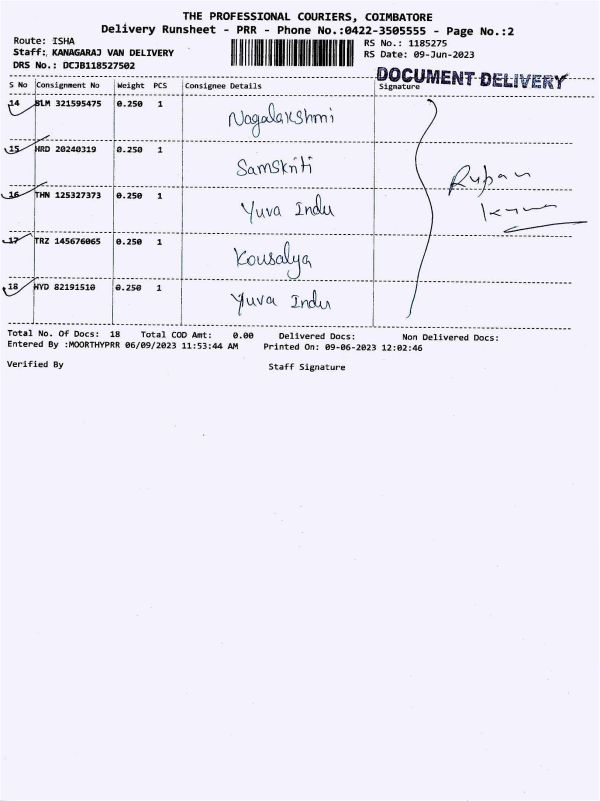 THE PROFESSIONAL COURIERS, COIMBATORE
Delivery Runsheet - PRR - Phone No.:0422-3505555 - Page No.:2
Route: ISHA
RS No.: 1185275
Staff: KANAGARAJ VAN DELIVERY
RS Date: 09-Jun-2023
DRS No.: DCJB118527502
DOCUMENT DELIVERY
S No Consignment No Weight PCS Consignee Details Signature
14 BLM 321595475 0.250 1 Nagalakshmi
15 HRD 20240319 0.250 1 Samskriti
16 THN 125327373 0.250 1 Yuva Indu
17 TRZ 145676065 0.250 1 Kousalya
18 HYD 82191510 0.250 1 Yuva Indu
Total No. Of Docs: 18 Total COD Amt: 0.00 Delivered Docs: Non Delivered Docs:
Entered By :MOORTHYPRR 06/09/2023 11:53:44 AM Printed On: 09-06-2023 12:02:46
Verified By Staff Signature